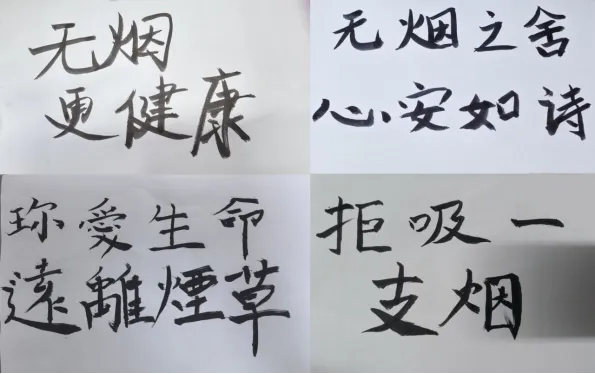 无烟
更健康
无烟之舍
心安如诗
珎愛生命
遠離煙草
拒吸一
支烟